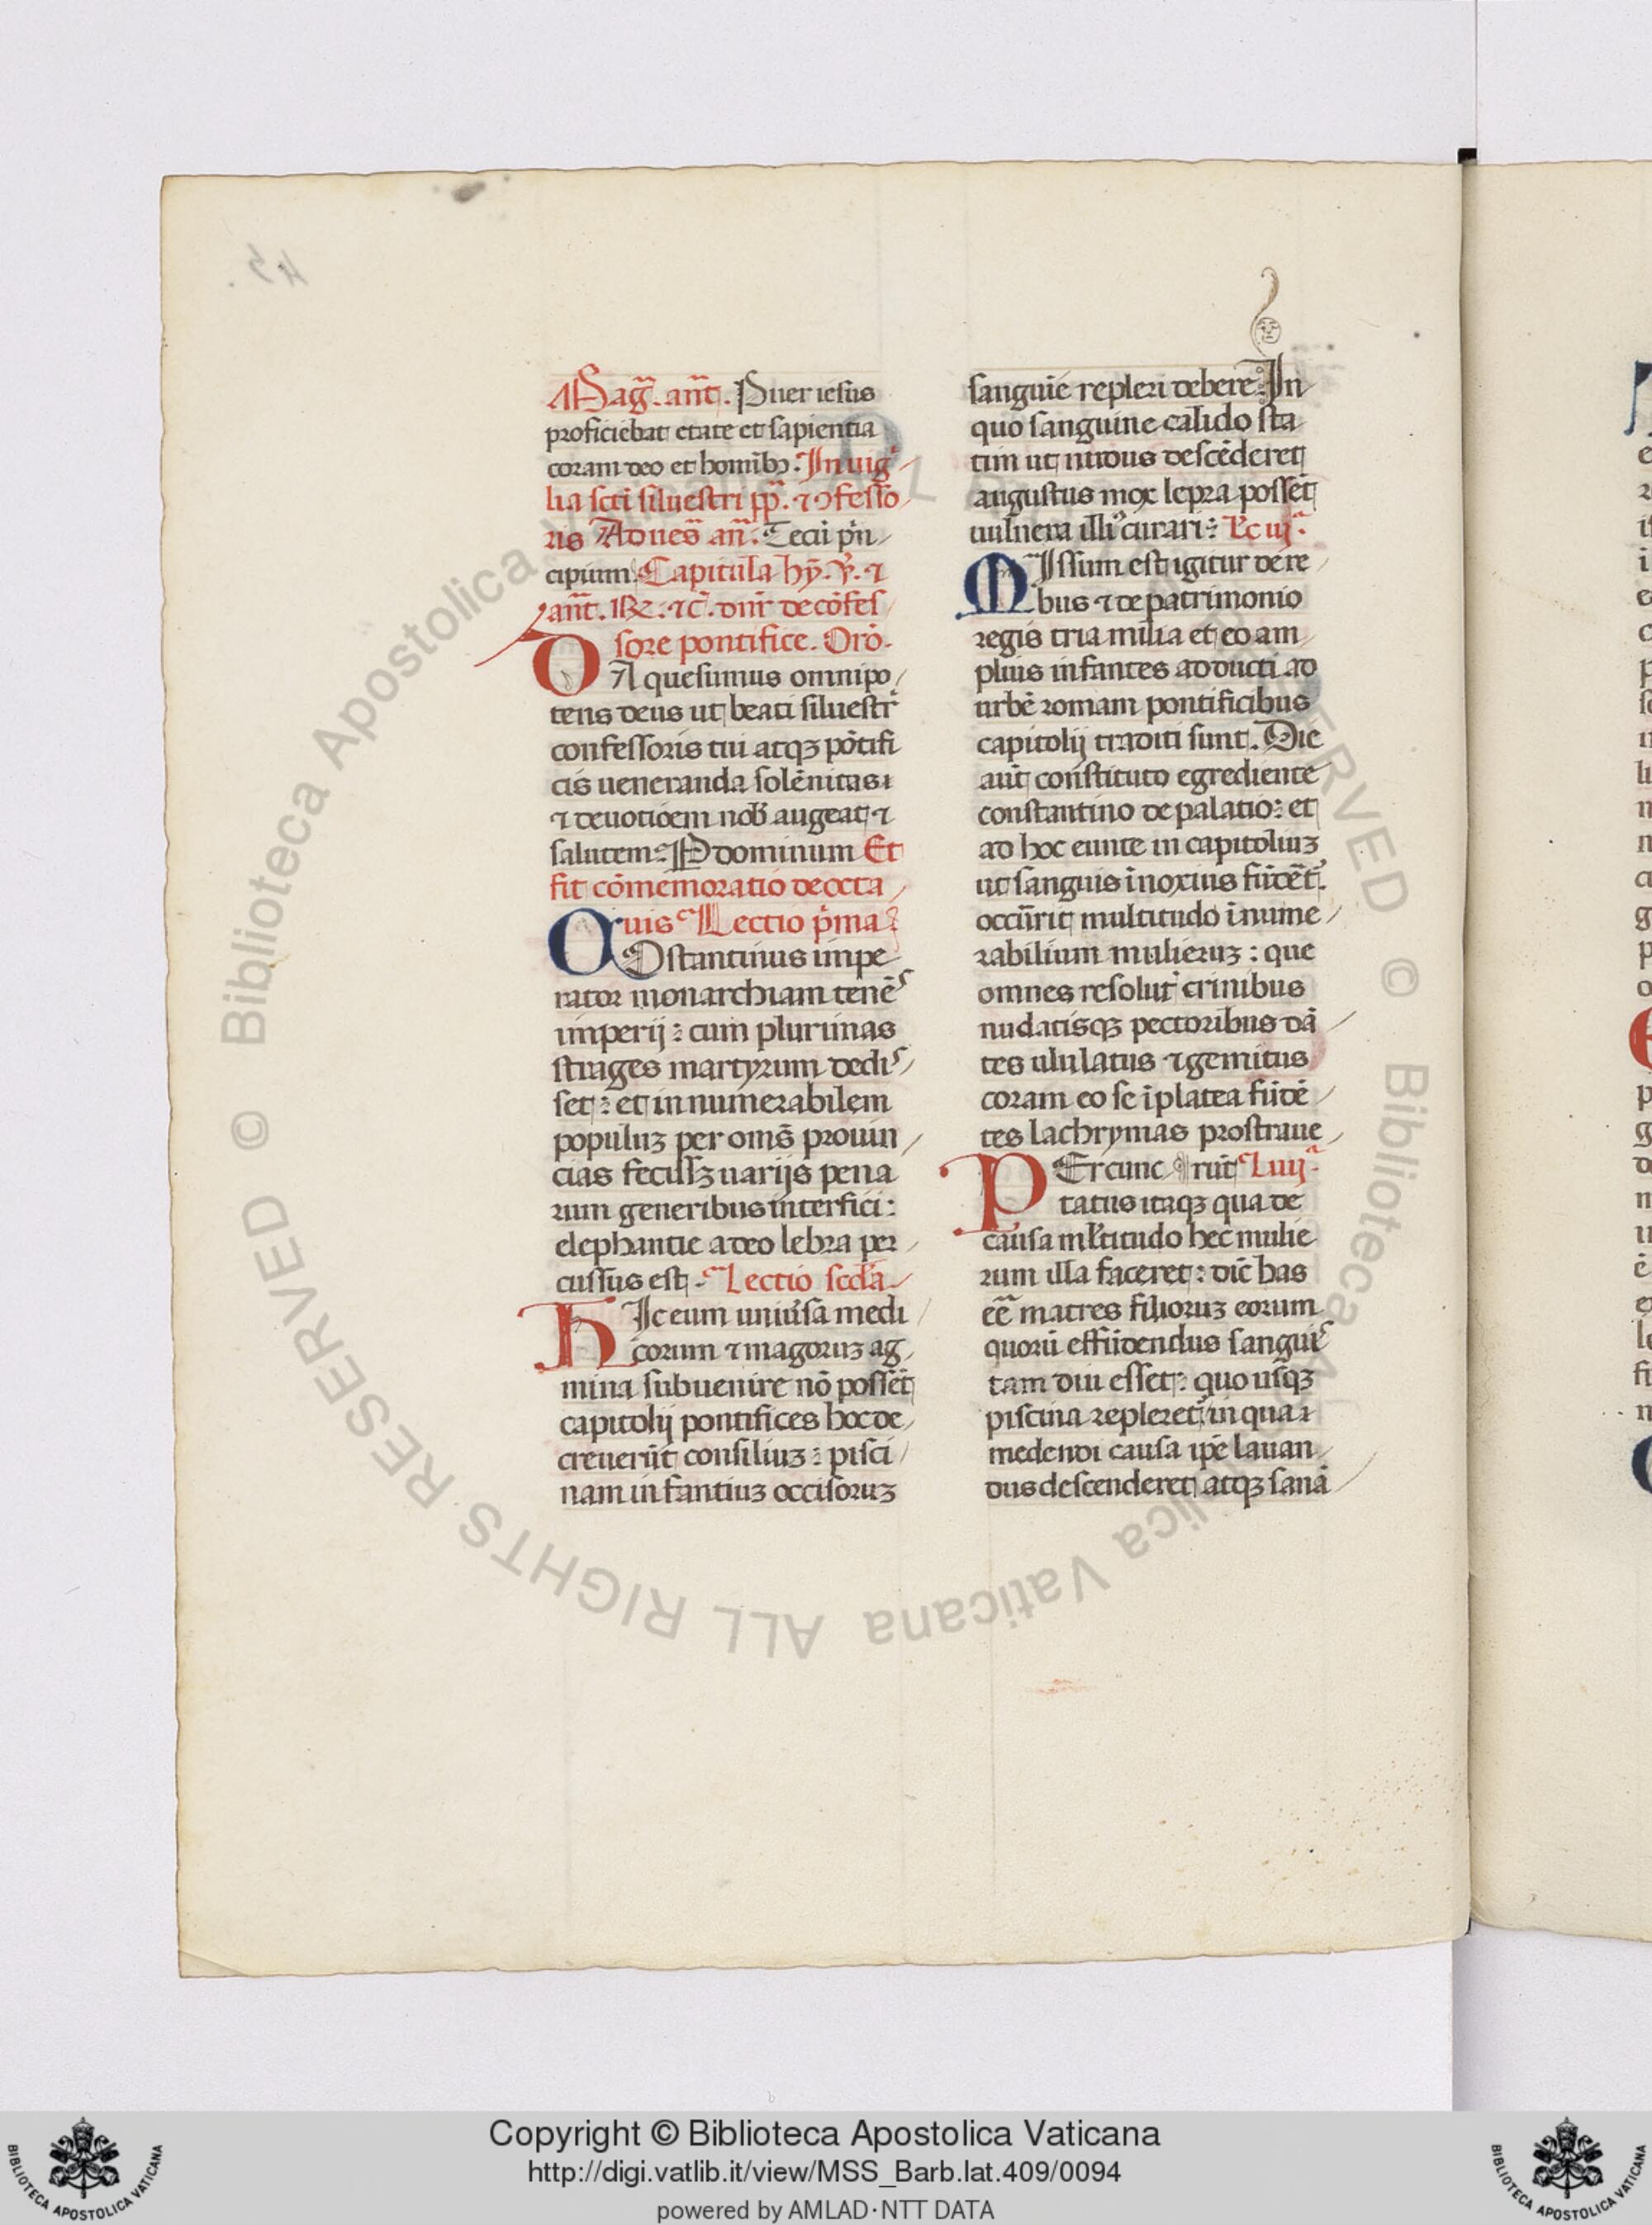 Mag̃. an̄t. Puer iesus
proficiebat etate et sapientia
coram deo et homĩbꝫ. In uig
lia sc̄ti siluestri pp̄. ⁊ ꝯfesso
ris Ad ues̄ an̄. Tecū pⁱn
cipium. Capitula hȳ. ℣. ⁊
an̄t. ℟. ⁊c̄. dnr̄ de cōfes
sore pontifice. Orō.
DA quesumus omnipo
tens deus ut beati siluestrⁱ
confessoris tui atqꝫ pōtifi
cis ueneranda solēnitas
⁊ deuotiōem nob̄ augeat ⁊
salutem. P dominum Et
fit cōmemoratio de octa
uis Lectio pⁱma
COstantinus impe
rator monarchiam tenēs
imperij: cum plurimas
strages martyrum dedis
set: et innumerabilem
populuꝫ per omēs prouin
cias fecissꝫ uarijs pena
rum generibus interfici:
elephantie adeo lebra per
cussus est. Lectio scd̄a.
HIc eum uniuˀsa medi
corum ⁊ magoruꝫ ag
mina subuenire nō possēt
capitolij pontifices hoc de
creuerūt consiliuꝫ: pisci
nam infantiuꝫ occisoruꝫ
sanguīe repleri debere. In
quo sanguine calido sta
tim ut nudus descēderet
augustus mox lepra possēt
uulnera illiꝰ curari: Lc̄ iijᵃ.
MIssum est igitur de re
bus ⁊ de patrimonio
regis tria milia et eo am
plius infantes adducti ad
urbē romam pontificibus
capitolij traditi sunt. Die
aūt constituto egrediente
constantino de palatio: et
ad hoc eunte in capitoliuꝫ
ut sanguis īnoxius fūdēt᷑.
occūrit multitudo īnume
rabilium mulieruꝫ: que
omnes resolutⁱ crinibus
nudatisqꝫ pectoribus dā
tes ululatus ⁊ gemitus
coram eo se ī platea fūdē
tes lachrymas prostraue
PErcunc rūt L iiijᵃ.
tatus itaqꝫ qua de
causa ml̄titudo hec mulie
rum illa faceret: dic̄ has
eē matres filioruꝫ eorum
quorū effūdendus sanguis
tam diu esset: quo usqꝫ
piscina repleret᷑ in qua
medendi causa ip̄e lauan
dus descenderet atqꝫ sanā
Copyright © Biblioteca Apostolica Vaticana
http://digi.vatlib.it/view/MSS_Barb.lat.409/0094
powered by AMLAD·NTT DATA
BIBLIOTECA APOSTOLICA VATICANA
BIBLIOTECA APOSTOLICA VATICANA
© Biblioteca Apostolica Vaticana ALL RIGHTS RESERVED © Biblioteca Apostolica Vaticana ALL RIGHTS RESERVED